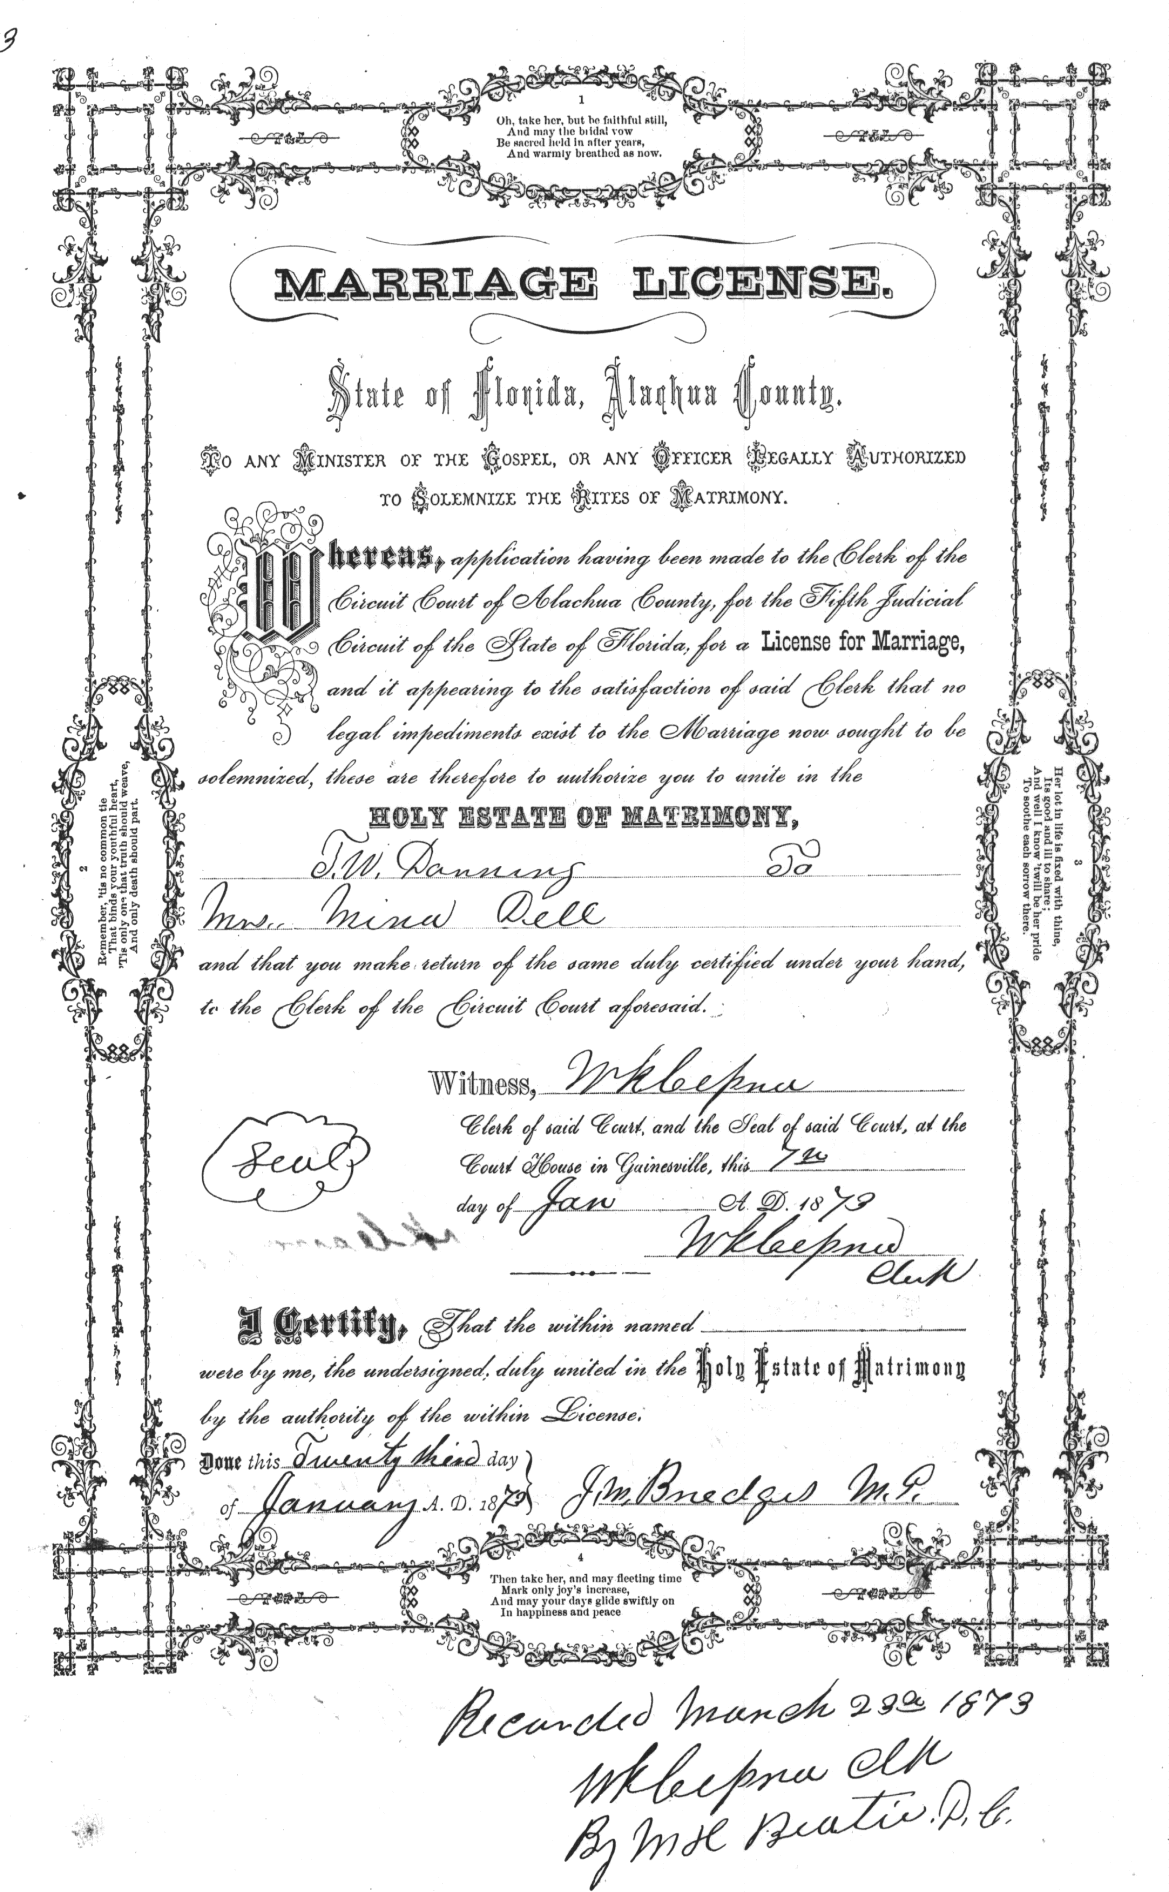 3
1
Oh, take her, but be faithful still,
And may the bridal vow
Be sacred held in after years,
And warmly breathed as now.
MARRIAGE LICENSE.
State of Florida, Alachua County.
TO ANY MINISTER OF THE GOSPEL, OR ANY OFFICER LEGALLY AUTHORIZED
TO SOLEMNIZE THE RITES OF MATRIMONY.
Whereas, application having been made to the Clerk of the
Circuit Court of Alachua County, for the Fifth Judicial
Circuit of the State of Florida, for a License for Marriage,
and it appearing to the satisfaction of said Clerk that no
legal impediments exist to the Marriage now sought to be
solemnized, these are therefore to authorize you to unite in the
HOLY ESTATE OF MATRIMONY,
T. W. Danning To
Mrs. Mina Dell
and that you make return of the same duly certified under your hand,
to the Clerk of the Circuit Court aforesaid.
2
Remember, 'tis no common tie
That binds your youthful heart,
'Tis only one that truth should weave,
And only death should part.
3
Her lot in life is fixed with thine,
Its good and ill to share;
And well I know 'twill be her pride
To soothe each sorrow there.
Witness, W K Cessna
Clerk of said Court, and the Seal of said Court, at the
Court House in Gainesville, this 7th
Seal
day of Jan A. D. 1873
W K Cessna
Clerk
I Certify, That the within named
were by me, the undersigned, duly united in the Holy Estate of Matrimony
by the authority of the within License.
Done this Twenty third day
of January A. D. 1873 J. M. Bridges M. G.
4
Then take her, and may fleeting time
Mark only joy's increase,
And may your days glide swiftly on
In happiness and peace
Recorded March 23d 1873
W K Cessna Clk
By M H Beatie. D. C.